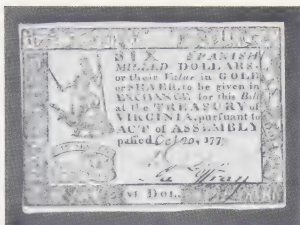 SIX SPANISH
MILLED DOLLARS,
or their Value in GOLD
or SILVER, to be given in
EXCHANGE for this Bill
at the TREASURY of
VIRGINIA, pursuant to
ACT of ASSEMBLY
passed Oct 20, 177
DOL